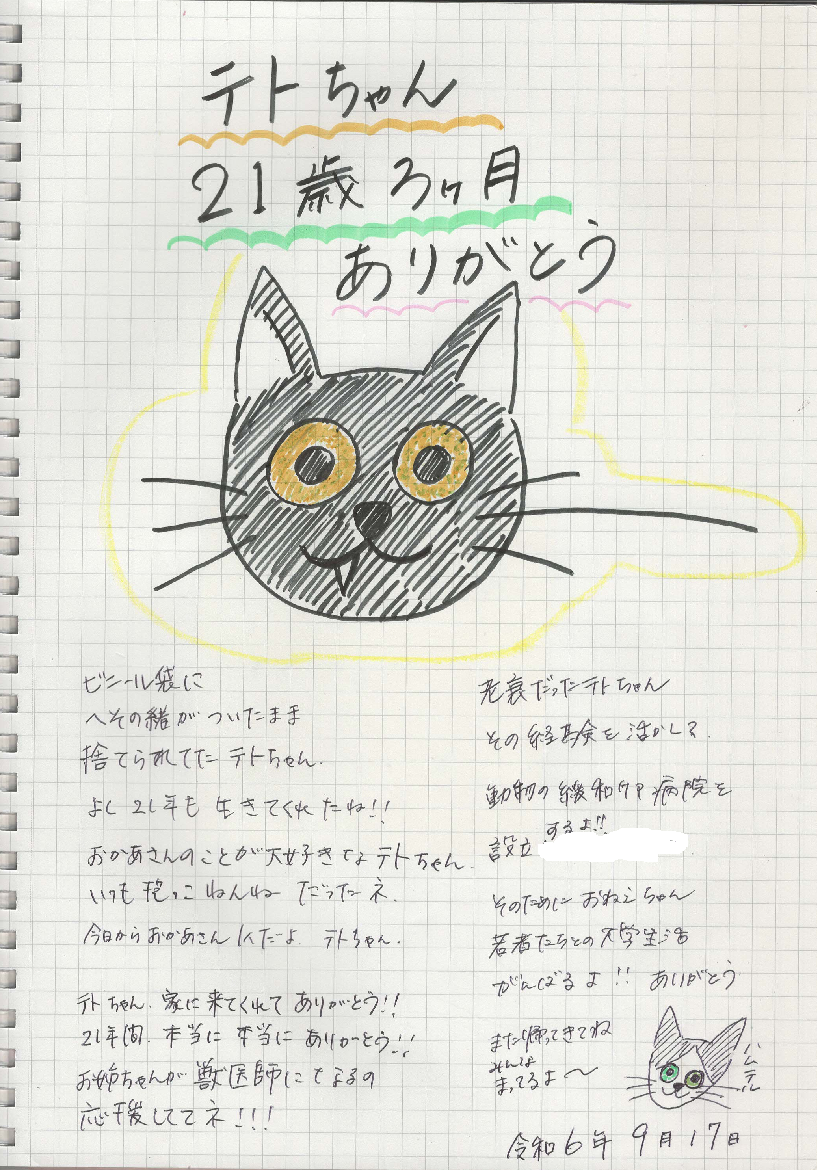 テトちゃん
21歳3ヶ月
ありがとう
ビニール袋に
へその緒がついたまま
捨てられてた テトちゃん.
よく 21年も 生きてくれたね!!
おかあさんのことが大好きなテトちゃん.
いつも 抱っこ ねんね だったネ.
今日からおかあさん 1人だよ. テトちゃん.
テトちゃん. 家に来てくれて ありがとう!!
21年間. 本当に 本当に ありがとう!!
お姉ちゃんが 獣医師になるの
応援しててネ!!!
老衰だったテトちゃん
その経験を活かして.
動物の緩和ケア病院を
設立するよ!!
そのために おねえちゃん
若者たちとの大学生活
がんばるよ!! ありがとう
また帰ってきてね
みんな
まってるよ〜
ハムテル
令和6年 9月17日